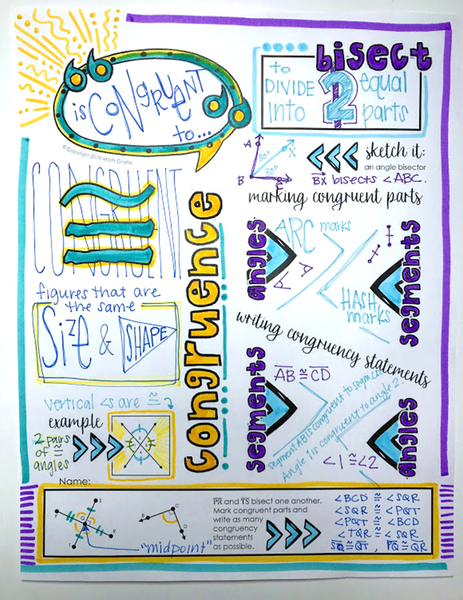 is CONGRUENT
to...
© Copyright 2018 Math Giraffe
bisect
to
DIVIDE
into
2
equal
parts
sketch it:
an angle bisector
BX bisects <ABC.
A
X
B
C
30°
30°
marking congruent parts
angles
ARC marks
HASH
marks
segments
CONGRUENT
CONGRUENT
CONGRUENT
figures that are
the same
Size & SHAPE
congruence
writing congruency statements
segments
AB ≅ CD
segment AB is congruent to segment CD
Angle 1 is congruent to angle 2.
<1 ≅ <2
angles
vertical <s are ≅
example
2 pairs
of ≅
angles
Name:
"midpoint"
PR and TS bisect one another.
Mark congruent parts and
write as many
congruency
statements
as possible.
<BCD ≅ <SQR
<SQR ≅ <PQT
<PQT ≅ <BCD
<TQR ≅ <SQR
SQ ≅ QT , PQ ≅ QR